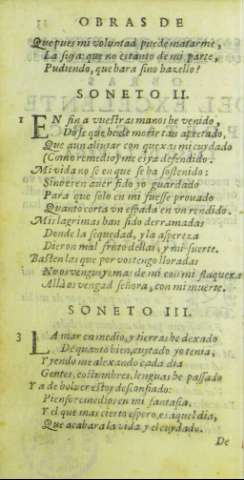 OBRAS DE
Que pues mi voluntad puede matarme,
La suya: que no es tanto de mi parte,
Pudiendo, que hara sino hazello?
SONETO II.
1 EN fin a vuestras manos he venido,
Do sè que he de morir tan apretado,
Que aun aliuiar con quexas mi cuydado
Como remedio me es ya defendido.
Mi vida no sè en que se ha sostenido:
Sino es en auer sido yo guardado
Para que solo en mi fuesse prouado
Quanto corta vn espada en vn rendido.
Mis lagrimas han sido derramadas
Donde la sequedad, y la aspereza
Dieron mal fruto dellas, y mi suerte.
Basten las que por vos tengo lloradas
No os vengueys mas de mi con mi flaqueza
Allà os vengad señora, con mi muerte.
SONETO III.
3 LA mar en medio, y tierras he dexado
De quanto bien, cuytado yo tenia,
Yyendo me alexando cada dia
Gentes, costumbres, lenguas he passado
Ya de boluer estoy desconfiado:
Pienso remedios en mi fantasia.
Y el que mas cierto espero, es aquel dia,
Que acabara la vida y el cuydado.
De